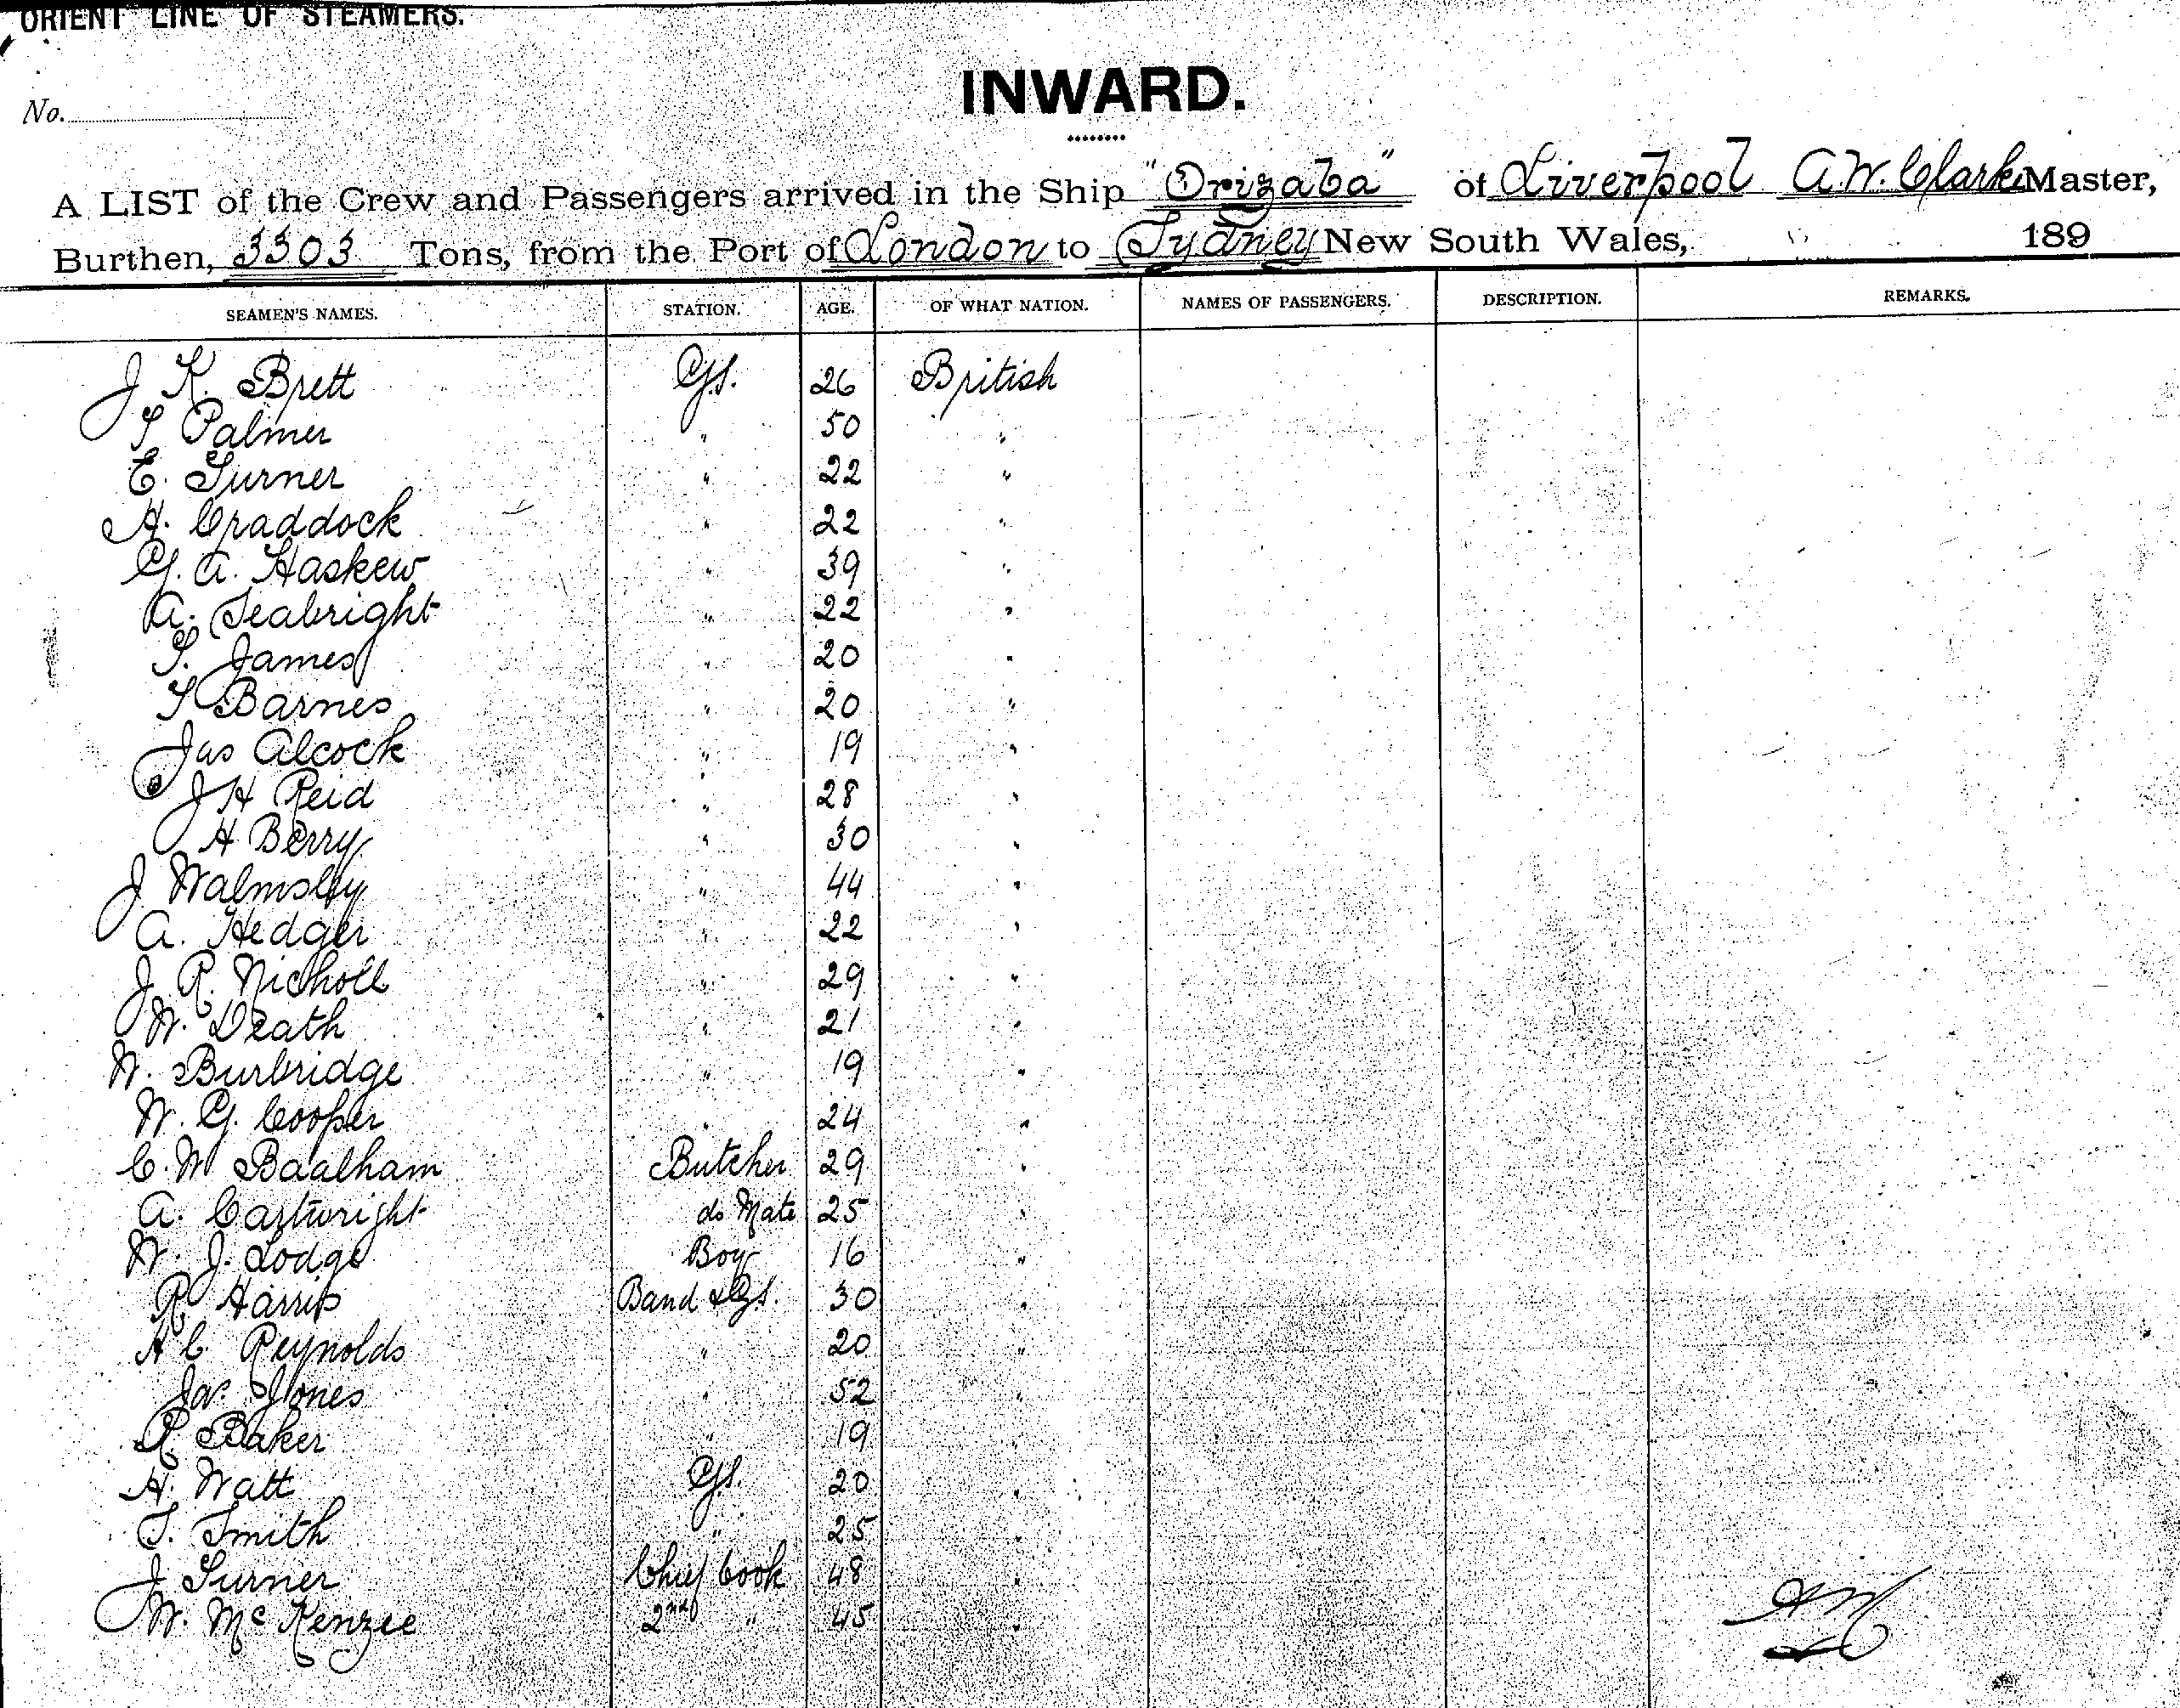 ORIENT LINE OF STEAMERS.
INWARD.
No.
A LIST of the Crew and Passengers arrived in the Ship "Orizaba" of Liverpool A.W. Clarke Master,
Burthen, 3303 Tons, from the Port of London to Sydney New South Wales, 189
SEAMEN'S NAMES. STATION. AGE. OF WHAT NATION. NAMES OF PASSENGERS. DESCRIPTION. REMARKS.
J K. Brett G.S. 26 British
T Palmer " 50 "
E. Turner " 22 "
H. Craddock " 22 "
G. A. Haskew " 39 "
A. Seabright " 22 "
T. James " 20 "
T Barnes " 20 "
Jas Alcock " 19 "
J H Reid " 28 "
H Berry " 30 "
J Walmsley " 44 "
A. Hedger " 22 "
J R. Nicholl " 29 "
W. Death " 21 "
W. Burbridge " 19 "
W. G. Cooper " 24 "
C. W Baalham Butcher 29 "
A. Cartwright do Mate 25 "
W. J. Lodge Boy 16 "
R Harris Band & G.S. 30 "
H C. Reynolds " 20 "
Jas. Jones " 52 "
R Baker " 19 "
H. Watt G.S. 20 "
T. Smith " 25 "
J Turner Chief Cook 48 "
W. McKenzie 2nd " 45 "